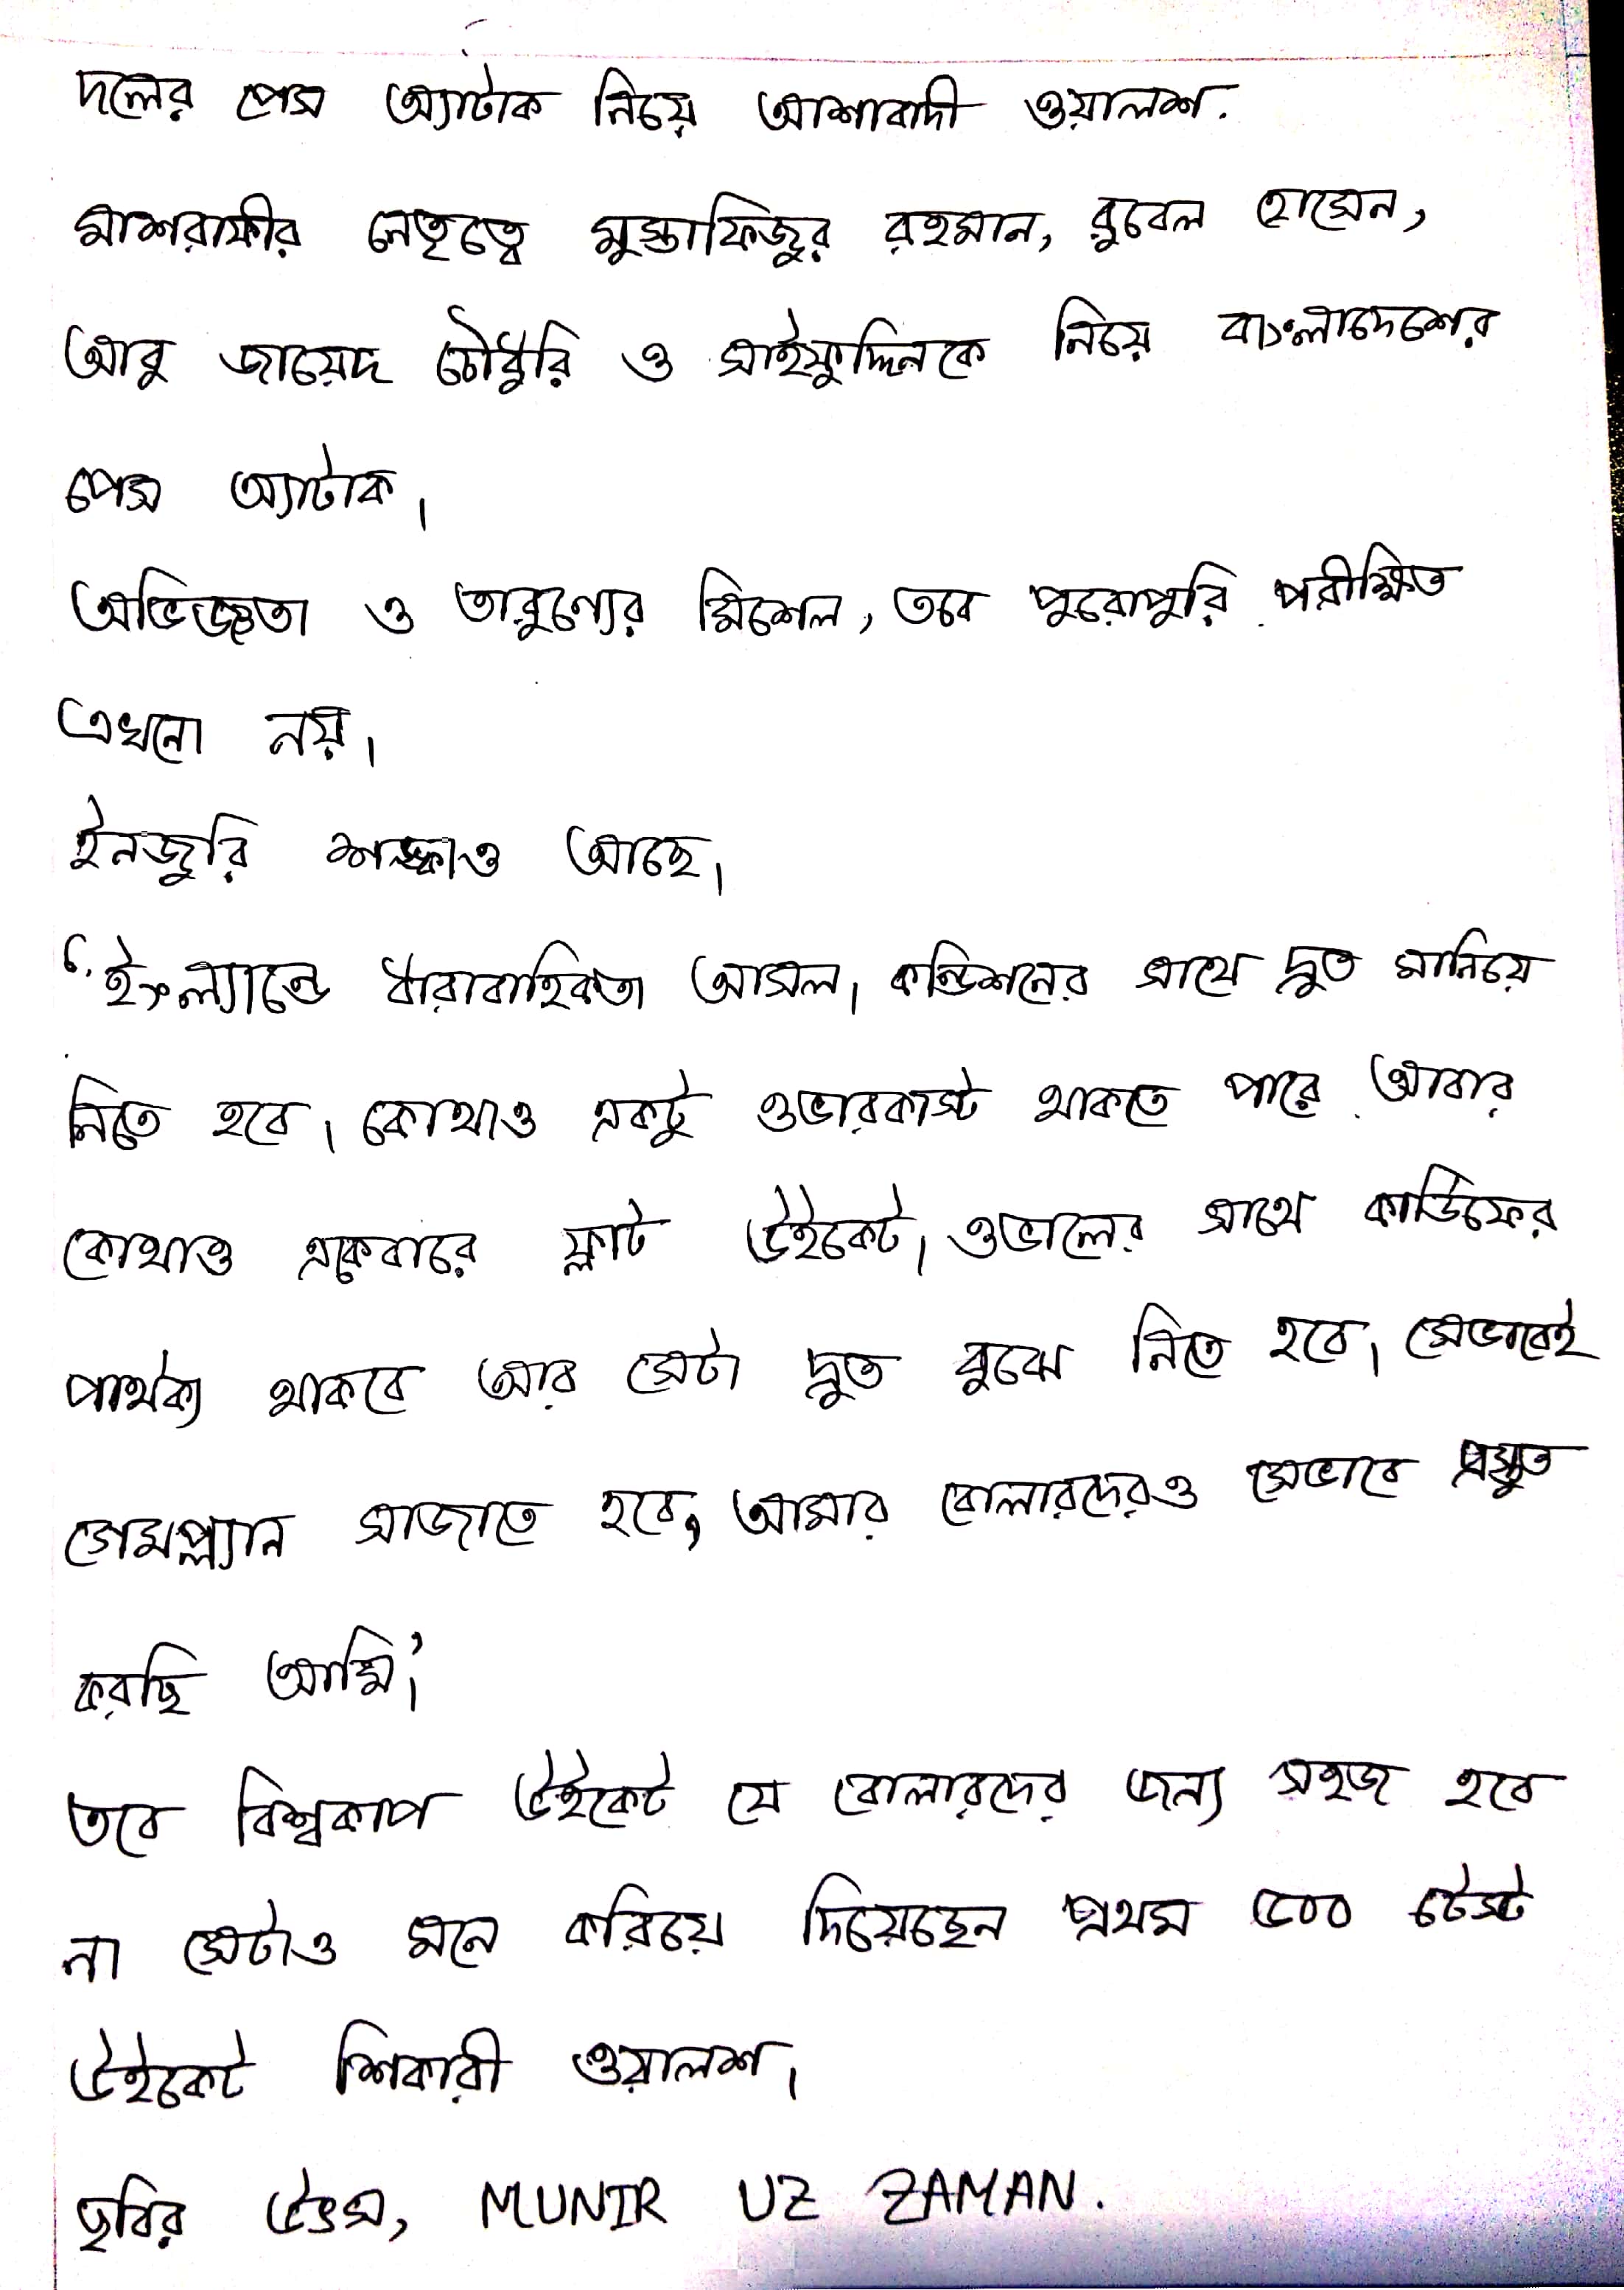 দলের পেস অ্যাটাক নিয়ে আশাবাদী ওয়ালশ.
মাশরাফীর নেতৃত্বে মুস্তাফিজুর রহমান, রুবেল হোসেন,
আবু জায়েদ চৌধুরি ও সাইফুদ্দিনকে নিয়ে বাংলাদেশের
পেস অ্যাটাক।
অভিজ্ঞতা ও তারুণ্যের মিশেল, তবে পুরোপুরি পরীক্ষিত
এখনো নয়।
ইনজুরি শঙ্কাও আছে।
‘ইংল্যান্ডে ধারাবাহিকতা আসল। কন্ডিশনের সাথে দ্রুত মানিয়ে
নিতে হবে। কোথাও একটু ওভারকাস্ট থাকতে পারে আবার
কোথাও একেবারে ফ্লাট উইকেট। ওভালের সাথে কার্ডিফের
পার্থক্য থাকবে আর সেটা দ্রুত বুঝে নিতে হবে। সেভাবেই
গেমপ্ল্যান সাজাতে হবে, আমার বোলারদেরও সেভাবে প্রস্তুত
করছি আমি।’
তবে বিশ্বকাপ উইকেট যে বোলারদের জন্য সহজ হবে
না সেটাও মনে করিয়ে দিয়েছেন প্রথম ৫০০ টেস্ট
উইকেট শিকারী ওয়ালশ।
ছবির উৎস, MUNIR UZ ZAMAN.